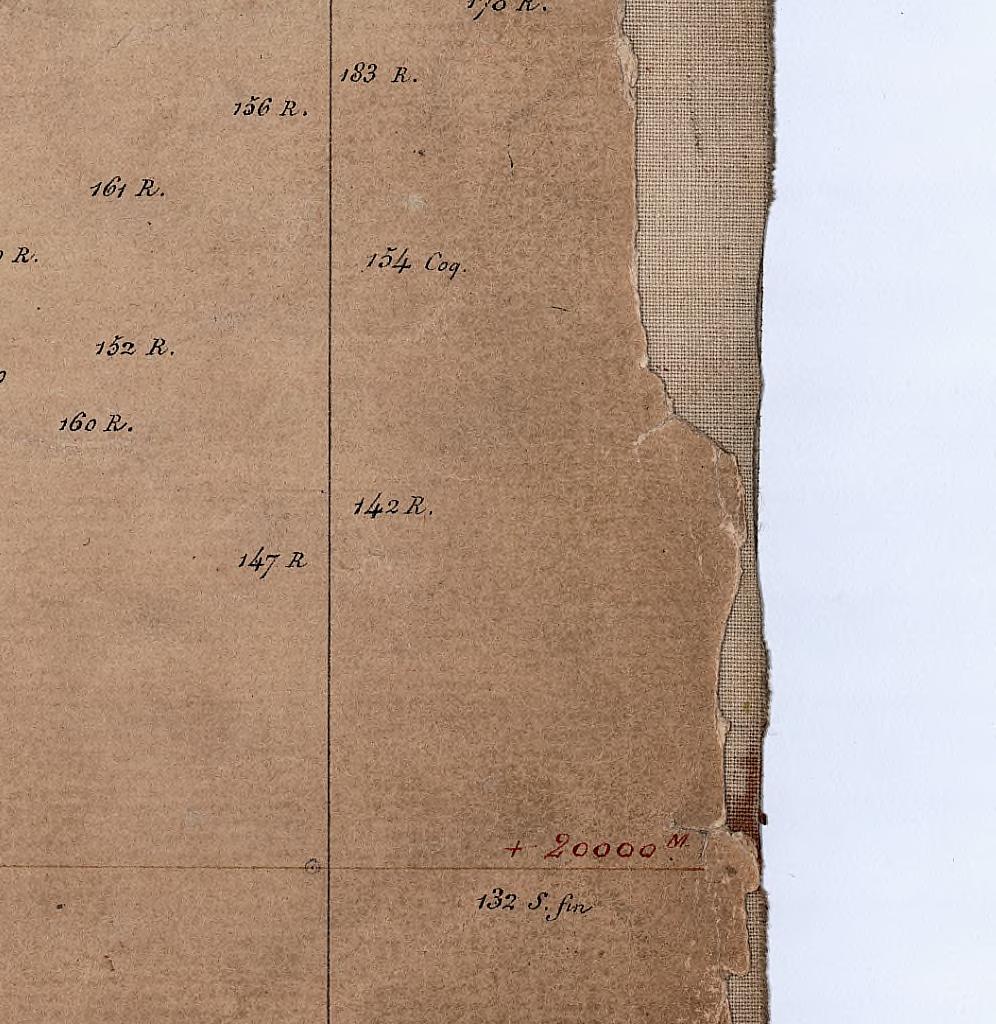 183 R.
156 R.
161 R.
R.
154 Coq.
152 R.
160 R.
142 R.
147 R
+ 20000 M.
132 S. fin